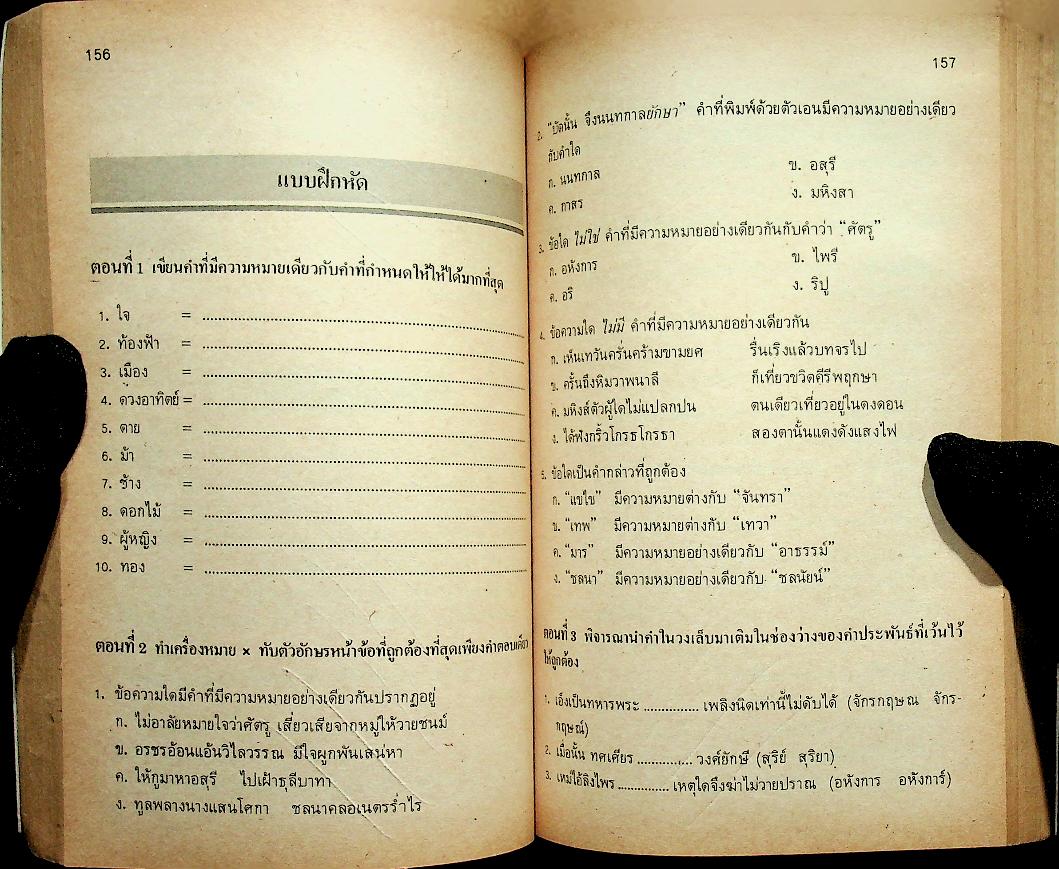 156
แบบฝึกหัด
ตอนที่ 1 เขียนคำที่มีความหมายเดียวกับคำที่กำหนดให้ให้ได้มากที่สุด
1. ใจ = ........................................
2. ท้องฟ้า = ........................................
3. เมือง = ........................................
4. ดวงอาทิตย์ = ........................................
5. ตาย = ........................................
6. ม้า = ........................................
7. ช้าง = ........................................
8. ดอกไม้ = ........................................
9. ผู้หญิง = ........................................
10. ทอง = ........................................
ตอนที่ 2 ทำเครื่องหมาย × ทับตัวอักษรหน้าข้อที่ถูกต้องที่สุดเพียงคำตอบเดียว
1. ข้อความใดมีคำที่มีความหมายอย่างเดียวกันปรากฏอยู่
ก. ไม่อาลัยหมายใจว่าศัตรู เสี่ยวเสียจากหมู่ให้วายชนม์
ข. อรชรอ้อนแอ้นวิไลวรรณ มีใจผูกพันเสน่หา
ค. ให้กูมาหาอสุรี ไปเฝ้าธุลีบาทา
ง. ทูลพลางนางแสนโศกา ชลนาคลอเนตรร่ำไร
157
2. "บัดนั้น จึงนนทกาลยักษา" คำที่พิมพ์ด้วยตัวเอนมีความหมายอย่างเดียว
กับคำใด
ก. นนทกาล ข. อสุรี
ค. กาสร ง. มหิงสา
3. ข้อใด ไม่ใช่ คำที่มีความหมายอย่างเดียวกันกับคำว่า "ศัตรู"
ก. อหังการ ข. ไพรี
ค. อริ ง. ริปู
4. ข้อความใด ไม่มี คำที่มีความหมายอย่างเดียวกัน
ก. เห็นเทวันครั่นคร้ามขามยศ รื่นเริงแล้วบทจรไป
ข. ครั้นถึงหิมวาพนาลี ก็เที่ยวขวิดคีรีพฤกษา
ค. มหิงส์ตัวผู้ใดไม่แปลกปน ตนเดียวเที่ยวอยู่ในดงดอน
ง. ได้ฟังกริ้วโกรธโกรธา สองตานั้นแดงดังแสงไฟ
5. ข้อใดเป็นคำกล่าวที่ถูกต้อง
ก. "แขไข" มีความหมายต่างกับ "จันทรา"
ข. "เทพ" มีความหมายต่างกับ "เทวา"
ค. "มาร" มีความหมายอย่างเดียวกับ "อาธรรม์"
ง. "ชลนา" มีความหมายอย่างเดียวกับ "ชลนัยน์"
ตอนที่ 3 พิจารณานำคำในวงเล็บมาเติมในช่องว่างของคำประพันธ์ที่เว้นไว้
ให้ถูกต้อง
1. เอ็งเป็นทหารพระ .............. เพลิงนิดเท่านี้ไม่ดับได้ (จักรกฤษณ จักร-
กฤษณ์)
2. เมื่อนั้น ทศเศียร .............. วงศ์ยักษี (สุริย์ สุริยา)
3. เหม่ไอ้ลิงไพร .............. เหตุใดจึงฆ่าไม่วายปราณ (อหังการ อหังการ์)